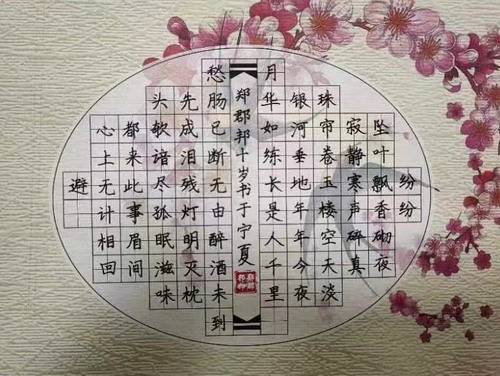 纷纷
坠叶飘香砌夜
寂静寒声碎真
珠帘卷玉楼空天淡
银河垂地年年今夜
月华如练长是人千里
郑郡邦十岁书于宁夏
愁肠已断无由醉酒未到
先成泪残灯明灭枕
头欹谙尽孤眠滋味
都来此事眉间
心上无计相回
避